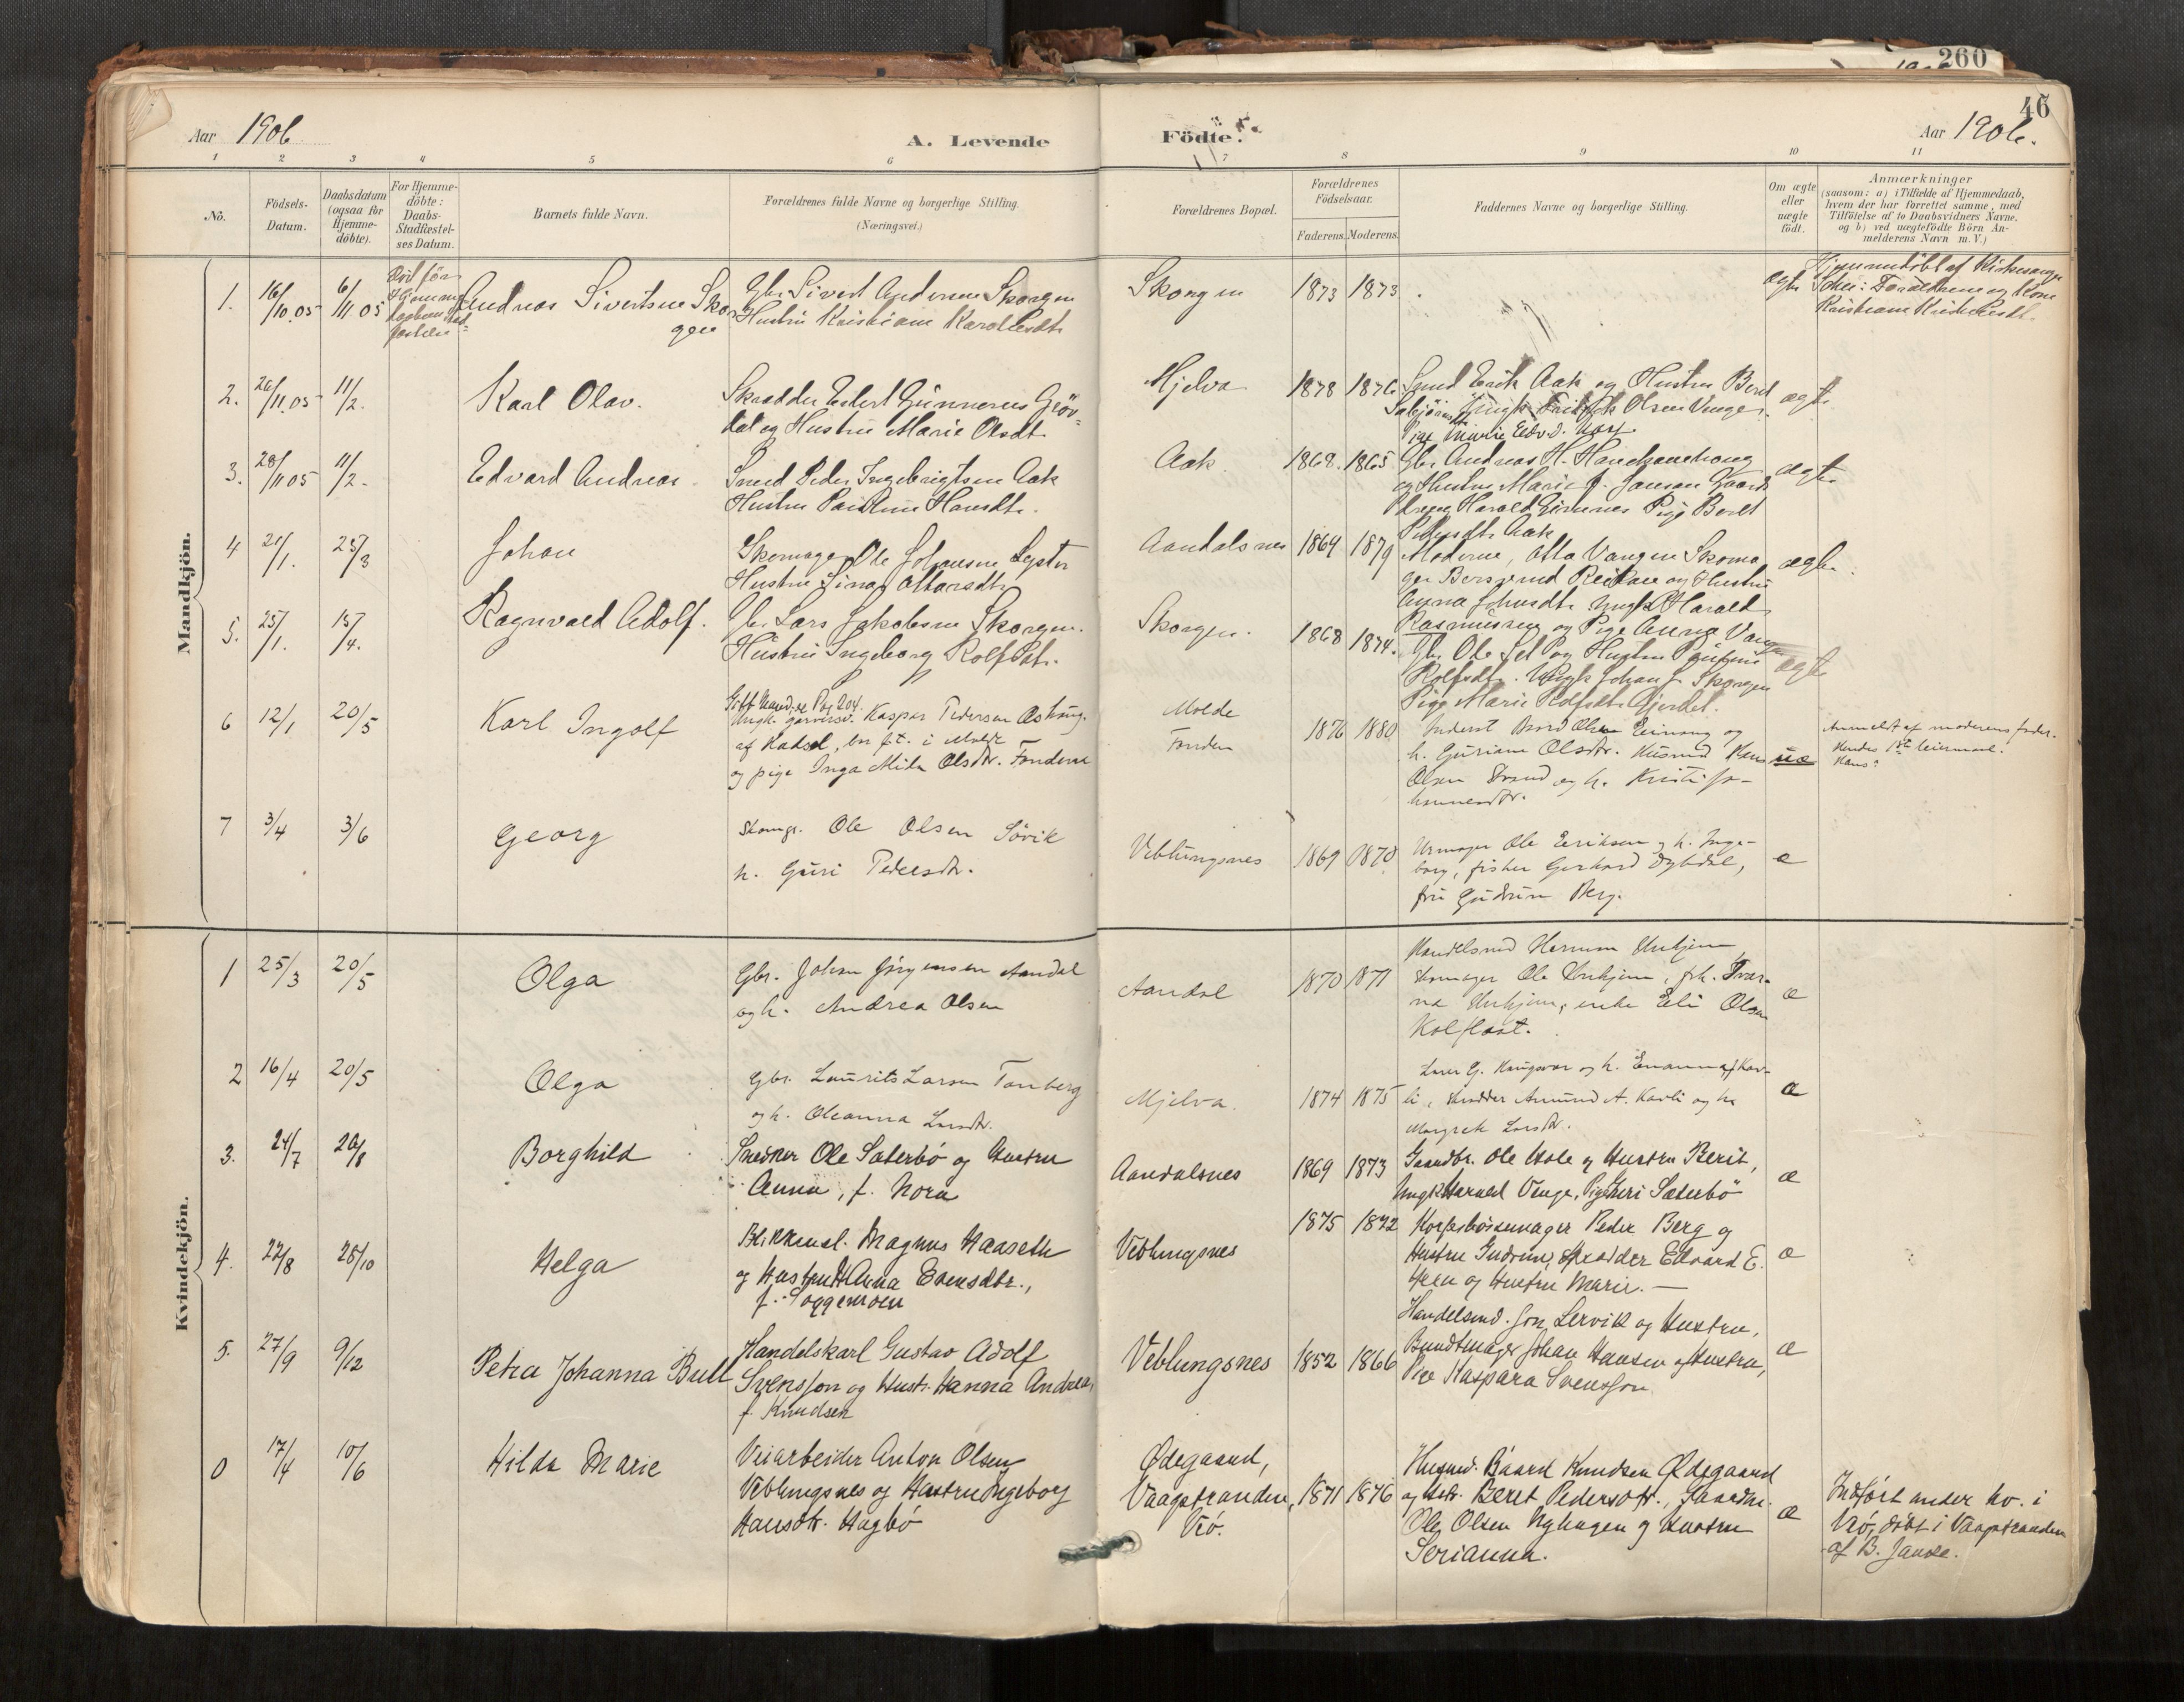 260
46
Aar 1906
A. Levende
Födte.
Aar 1906.
1 2 3 4 5 6 7 8 9 10 11
No.
Födsels-
Datum.
Daabsdatum
(ogsaa for
Hjemme-
döbte).
For Hjemme-
döbte:
Daabs-
Stadfæstel-
ses Datum.
Barnets fulde Navn.
Forældrenes fulde Navne og borgerlige Stilling.
(Næringsvei.)
Forældrenes Bopæl.
Forældrenes
Födselsaar.
Faderens. Moderens.
Faddernes Navne og borgerlige Stilling.
Om ægte
eller
uægte
födt.
Anmærkninger
(saasom: a) i Tilfælde af Hjemmedaab,
hvem der har forrettet samme, med
Tilföielse af to Daabsvidners Navne.
og b) ved uægtefödte Börn An-
melderens Navn m. V.)
Mandkjön.
1. 16/10.05 6/11.05
Andreas Sivertsen Skor
gen
Gbr. Sivert Andersen Skorgen
Hustru Kristiane
Skorgen
1873 1873
ægte
Hjemmedöbt af Kirkesanger
2. 26/11.05 11/2.
Karl Olav.
Skrædder Edert Gunnerus Gröv-
dal og Hustru Marie Olsdt.
Hjelva
1878 1876
Smed Erik Aak og Hustru Beret
Olsen Venge.
Pige Marie Edv.d.
ægte
3. 28/11 05 11/2.
Edvard Andreas
Smed Peder Ingebrigtsen Aak
Hustru Hansdt.
Aak
1868. 1865
Gbr. Andreas H.
og Hustru Marie J. Jansen Gaard
Harald Pige Beret
Pedersdt. Aak
ægte
4 21/1. 25/3
Johan
Skomager Ole Johansen Lyster
Hustru Sina Ottarsdt.
Aandalsnes
1864 1879
Moderne, Otta Vangen Skoma
ger og Hustru
Anna Johnsdt. Ungk. Harald
Rasmussen og Pige Anna Vangen
ægte.
5. 25/1. 15/4.
Ragnvald Adolf.
Gbr. Lars Jakobsen Skorgen.
Hustru Ingeborg Rolfsdt.
Skorgen.
1868 1874.
Gbr. Ole og Hustru
Rolfsdt. Ungk. Johan J. Skorgen
Pige Marie Rolfsdt. Gjerdet.
ægte
6 12/1 20/5
Karl Ingolf
Kaspar Pedersen
af Hadsel, bor f.t. i Molde
og pige Inga Mila Olsdtr. Fonden
Molde
Fonden
1876 1880
Inderst Olsen og
h. Guriane Olsdtr. Husmd Hans
Olsen og h. Kristi Jo-
hannesdtr.
uæ
Anmeldt af moderens fader.
Hendes 1ste leiermaal.
Hans?
7 3/4 3/6
Georg
Skomgr. Ole Olsen Sövik
h. Guri Pedersdtr.
Veblungsnes
1869 1870
Urmager Ole Eriksen og h. Inge-
borg, fisker Gerhard Dybdal,
fru Gudrun Berg.
æ
Kvindekjön.
1 25/3 20/5
Olga
Gbr. Johan Jörgensen Aandal
og h. Andrea Olsen
Aandal
1870 1871
Handelsmd Herman Unhjem
skomager Ole Unhjem, frk. Tvar-
na Unhjem, enke Eli Olsen
Kolflaat.
æ
2 16/4 20/5
Olga
Gbr. Laurits Larsen Tonberg
og h. Oleanna Larsdtr.
Mjelva.
1874 1875
og h. Emanna Kav-
li, skrædder Amund A. Kavli og h.
Margrete Larsdtr.
æ
3. 24/7 26/8
Borghild
Snedker Ole Sæterbö og Hustru
Anna, f. Nora
Aandalsnes
1869 1873
Gaardbr. Ole Hole og Hustru Berit,
Ungk. Harald Venge, Pige Guri Sæterbö
æ
4. 22/8 28/10
Helga
Blikkensl. Magnus Haaseth
og Hustru Anna Evensdtr.,
f. Soggemoen
Veblungsnes
1875 1872
Peder Berg og
Hustru Gudrun, Skrædder Edvard E.
Heen og Hustru Marie. —
æ
5. 27/9 9/12
Petra Johanna Bull
Handelskarl Gustav Adolf
Svensson og Hustr. Hanna Andrea,
f. Knudsen
Veblungsnes
1852 1866
Handelsmd. Jon Lervik og Hustru,
Bundtmager Johan Hansen og Hustru,
Pige Kaspara Svensson
æ
0 17/4 10/6
Hilda Marie
Veiarbeider Anton Olsen
Veblungsnes og Hustru Ingeborg
Hansdtr. Hagbö
Ødegaard,
Vaagstranden,
Vö.
1871 1876
Husmd. Baard Knudsen Ødegaard
og Hstr. Beret Pedersdtr., Gaardbr.
Ole Olsen Nyhagen og Hustru
Serianna.
æ
Indfört under No. i
Vö, döbt i Vaagstranden
af B. Janse.